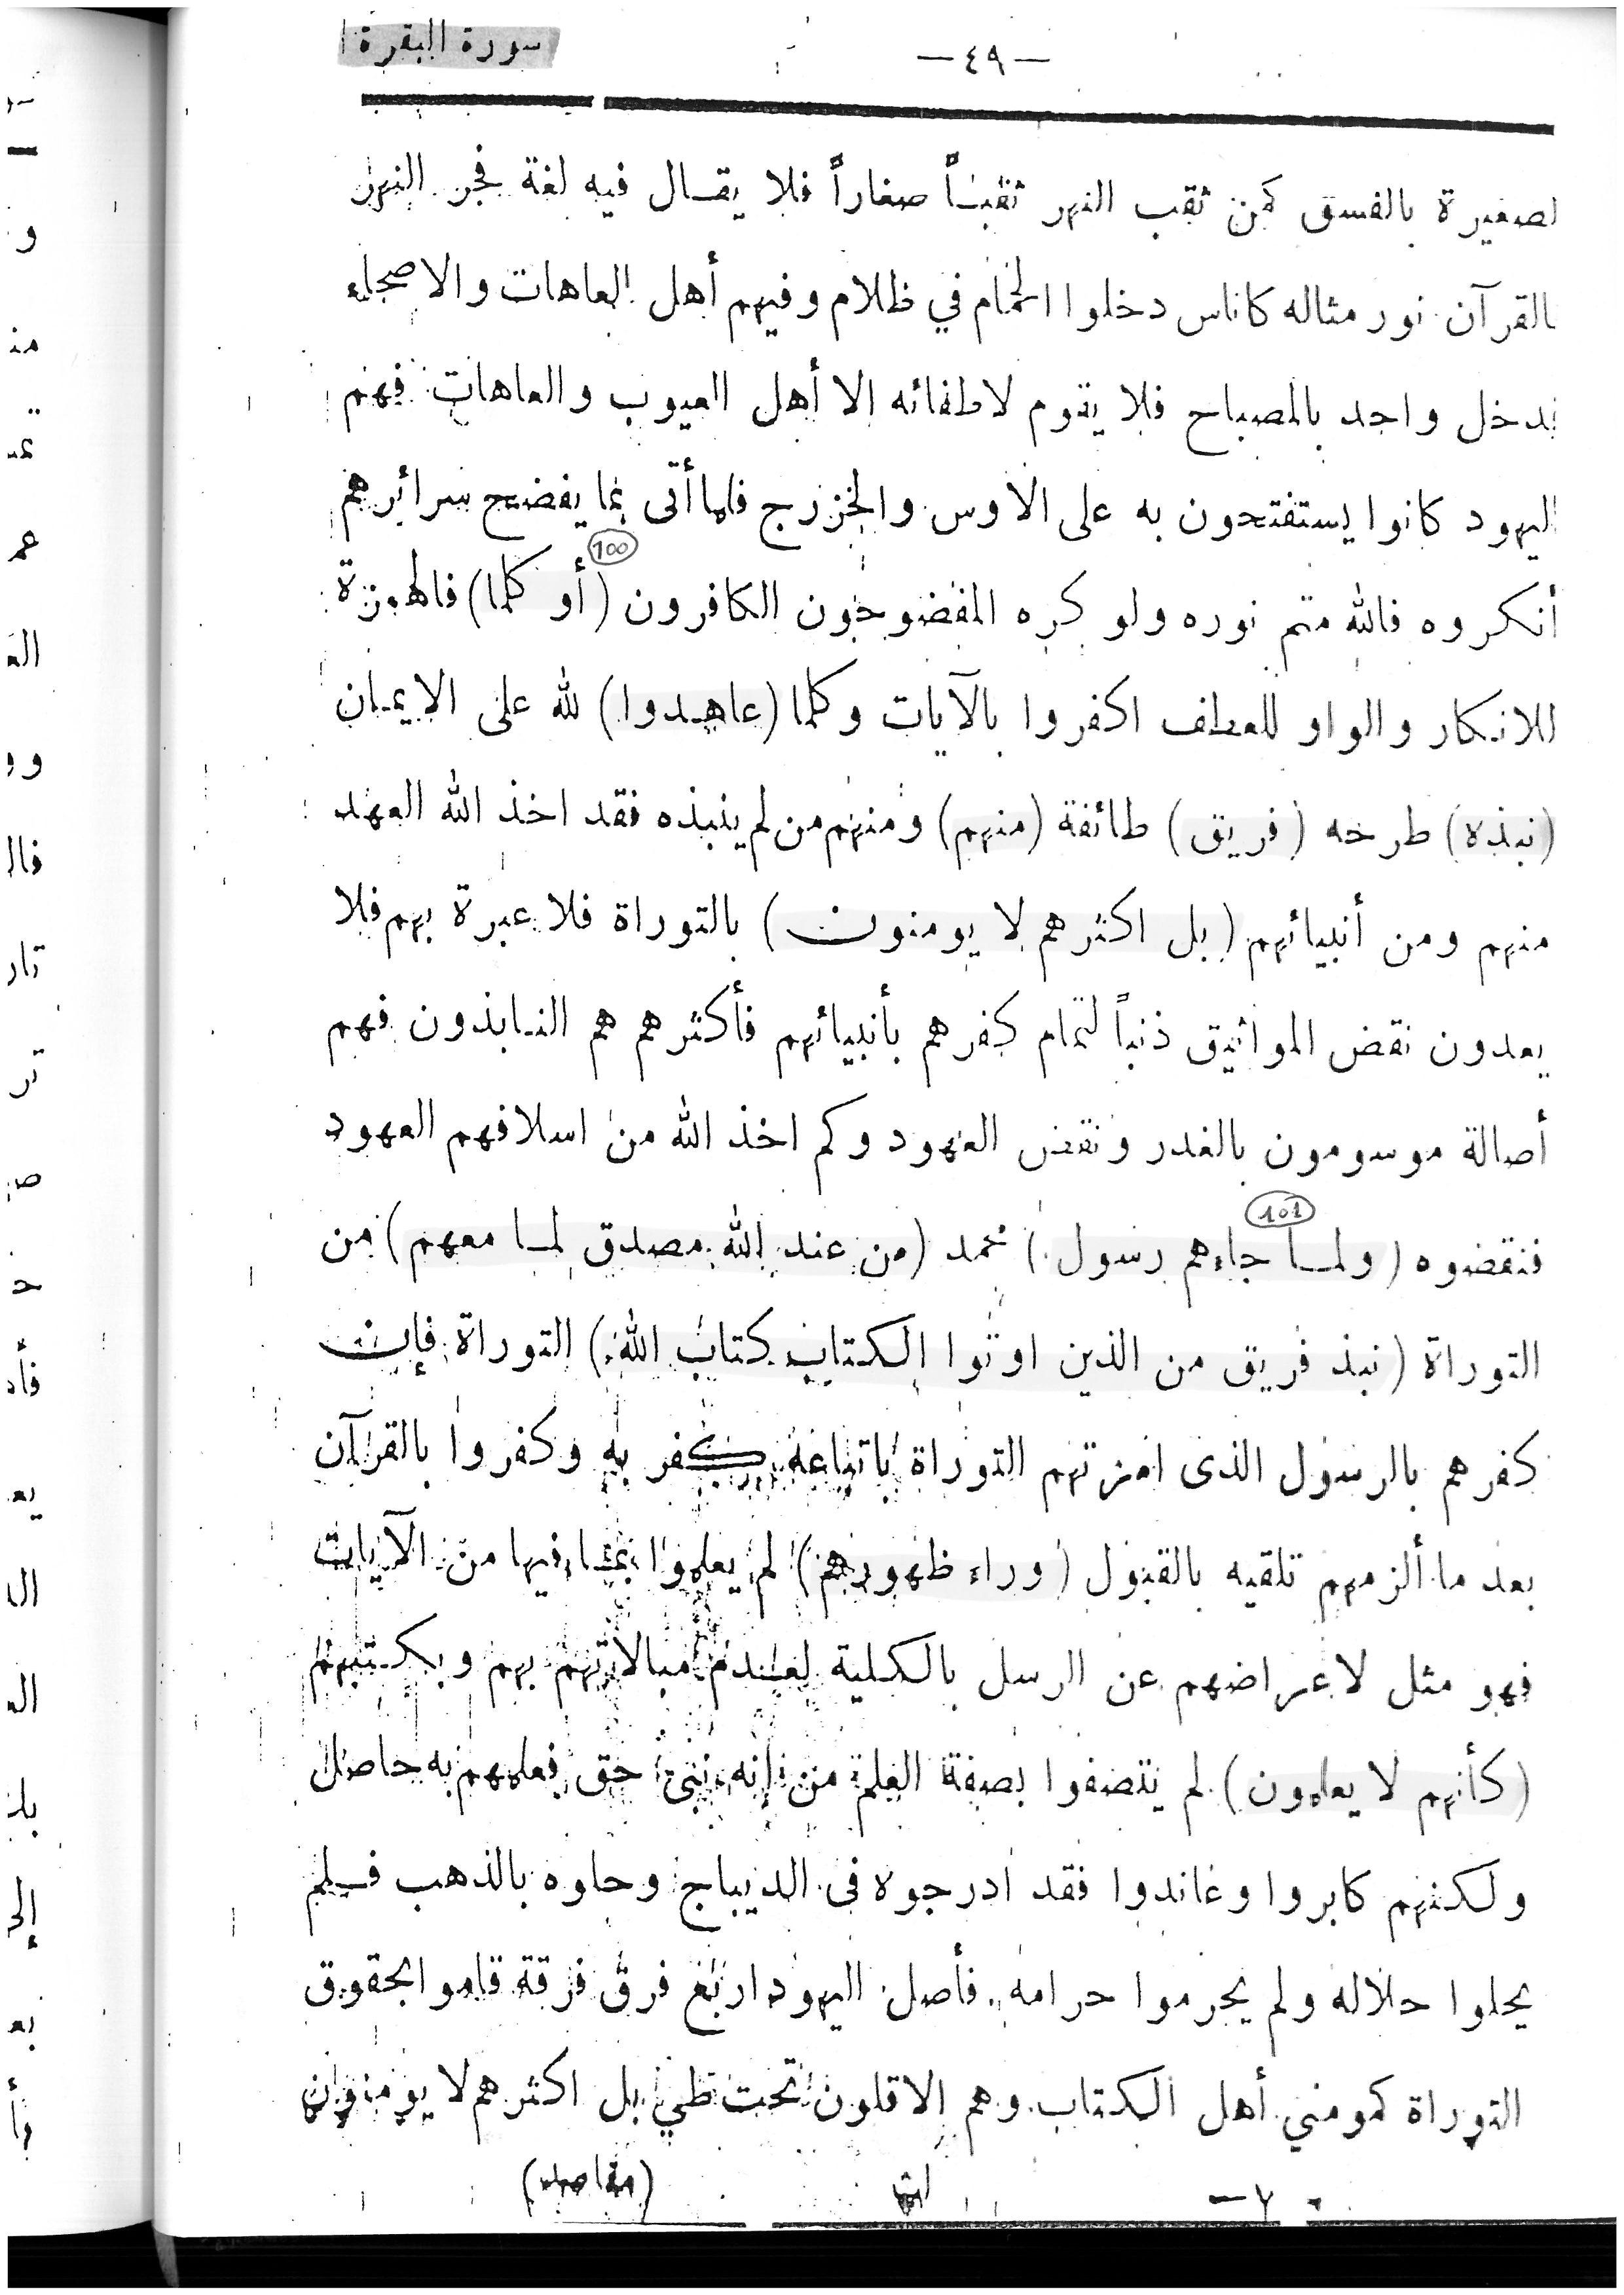 سورة البقرة
—٤٩—
لصغيرة بالفسق كمن ثقب النهر ثقباً صغاراً فلا يقال فيه لغة فجر النهر
بالقرآن نور مثاله كاناس دخلوا الحمام في ظلام وفيهم أهل العاهات والاصحاء
فدخل واحد بالمصباح فلا يقوم لاطفائه الا أهل العيوب والعاهات فهم
اليهود كانوا يستفتحون به على الاوس والخزرج فلما أتى بما يفضح سرائرهم
أنكروه فالله متم نوره ولو كره المفضوحون الكافرون (أو كلما) فالهمزة
100
للانكار والواو للعطف اكفروا بالآيات وكلما (عاهدوا) لله على الايمان
(نبذه) طرحه (فريق) طائفة (منهم) ومنهم من لم ينبذه فقد اخذ الله العهد
منهم ومن أنبيائهم (بل اكثرهم لا يومنون) بالتوراة فلا عبرة بهم فلا
يعدون نقض المواثيق ذنباً لتمام كفرهم بأنبيائهم فأكثرهم هم النابذون فهم
أصالة موسومون بالغدر ونقض العهود وكم اخذ الله من اسلافهم العهود
101
فنقضوه (ولما جاءهم رسول) محمد (من عند الله مصدق لما معهم) من
التوراة (نبذ فريق من الذين اوتوا الكتاب كتاب الله) التوراة فإن
كفرهم بالرسول الذى امرتهم التوراة باتباعه كفر به وكفروا بالقرآن
بعد ما ألزمهم تلقيه بالقبول (وراء ظهورهم) لم يعلموا بما فيها من الآيات
فهو مثل لاعراضهم عن الرسل بالكلية لعدم مبالاتهم بهم وبكتبهم
(كأنهم لا يعلمون) لم يتصفوا بصفة العلم من انه نبئ حق فعلمهم به حاصل
ولكنهم كابروا وعاندوا فقد ادرجوه فى الديباج وحلوه بالذهب فلم
يحلوا حلاله ولم يحرموا حرامه فأصل اليهود اربع فرق فرقة قاموا بحقوق
التوراة كمومني أهل الكتاب وهم الاقلون تحت طي بل اكثرهم لا يومنون
٧— (مقاصد)